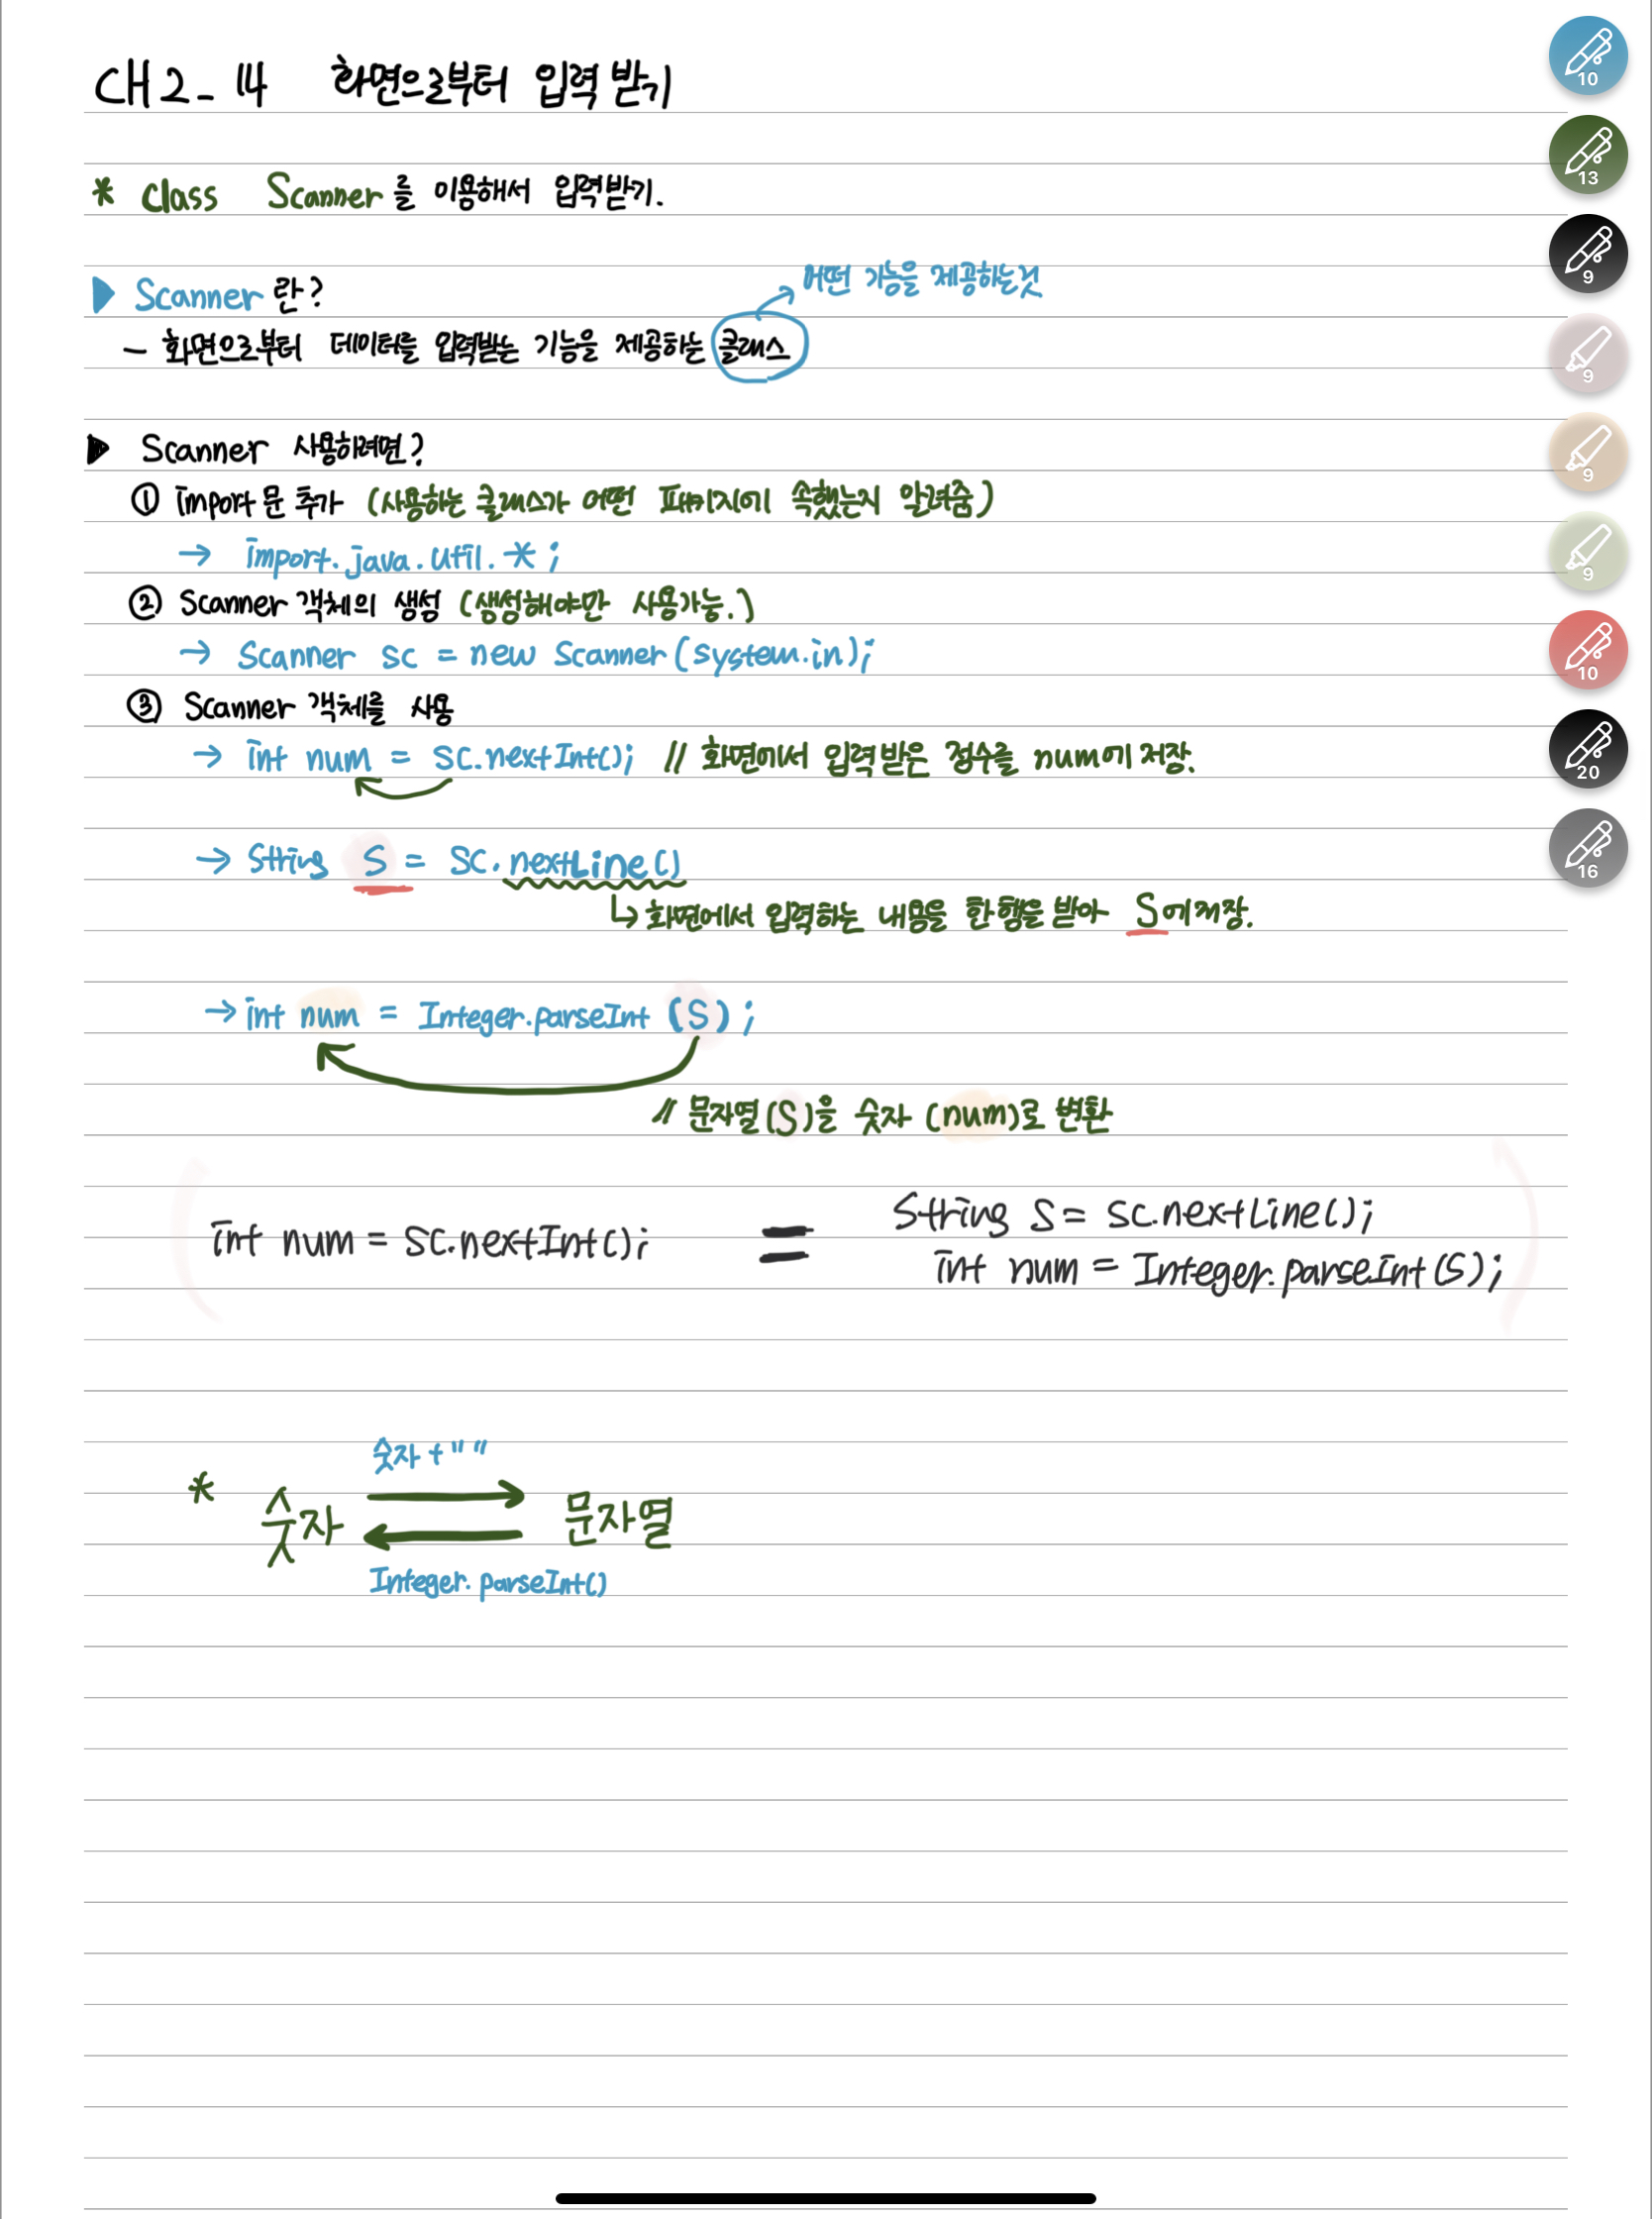 CH2_14 화면으로부터 입력 받기
* Class Scanner를 이용해서 입력받기.
어떤 기능을 제공하는것
Scanner란?
- 화면으로부터 데이터를 입력받는 기능을 제공하는 클래스
Scanner 사용하려면?
① import문 추가 (사용하는 클래스가 어떤 패키지에 속했는지 알려줌)
→ import.java.util.*;
② Scanner 객체의 생성 (생성해야만 사용가능.)
→ Scanner sc = new Scanner(system.in);
③ Scanner 객체를 사용
→ int num = sc.nextInt(); // 화면에서 입력 받은 정수를 num에 저장.
→ String S = SC.nextLine()
↳ 화면에서 입력하는 내용을 한 행을 받아 S에 저장.
→ int num = Integer.parseInt (S);
// 문자열(S)을 숫자 (num)로 변환
String S = sc.nextLine();
(int num = sc.nextInt(); =
int num = Integer.parseInt(S);)
숫자+""
* 숫자 문자열
Integer.parseInt()
10
13
9
9
9
9
10
20
16